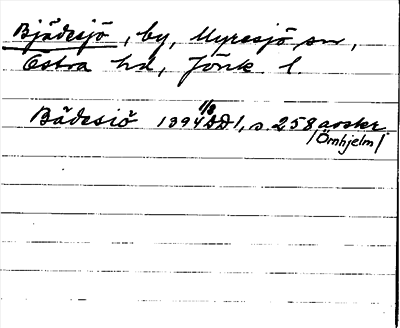 Bjädesjö, by, Myresjö sn,
Östra hd, Jönk. l.
Bädesiö 1394 1/8 DD 1, s. 258, avskr.
/Örnhjelm/